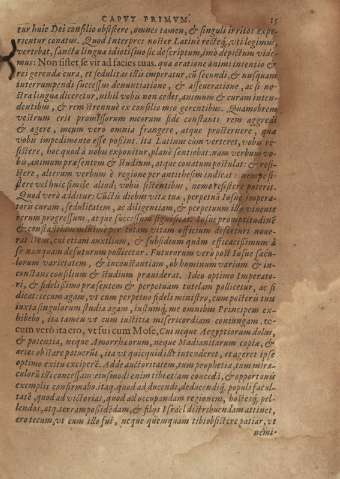 CAPVT PRIMVM. 15
tur huic Dei consilio obsistere, omnes tamen, & singuli irritos expe-
rientur conatus. Quod Interpres noster Latinè recteq́, vt legimus,
vertebat, sancta lingua idiotismo sic descriptum, imò depictum vide-
mus: Non sistet se vir ad facies tuas. qua oratione animi intentio &
rei gerenda cura, et sedulitas isti imperatur, cùm secundi, & nusquam
interrumpendi successus denuntiatione, & asseueratione, ac si no-
stra lingua diceretur, nihil vobis non cedet, animum & curam inten-
dentibus, & rem strennuè ex consilio meo gerentibus. Quamobrem
vestrûm erit promissorum meorum fide constanti rem aggredi
& agere, meum verò omnia frangere, atque prosternere, qua
vobis impedimento esse possint. ita Latinè cùm verteret, vobis re-
sistere, hoc quod à nobis exponitur, planè sentiebat. nam verbum vo-
bis, animum præsentem & studium, atque conatum postulat: & resi-
stere, alterum verbum è regione per antithesim indicat:
stere vel huic simile aliud, vobis sistentibus, nemo resistere poterit.
Quod verò additur: Cunctis diebus vitæ tuæ, perpetuam Iosue impera-
toris curam, sedulitatem, ac diligentiam, & perpetuum illi euentu
rerum progressum, atque successum significat. Iosue promptitudinem
& constantiam
cui etiam auxilium, & subsidium quàm efficacissimum à
se nunquam defuturum pollicetur. Futurorum verò posset Iosue sæcu-
lorum varietatem, & inconstantiam, ob hominum variam & in-
constans consilium & studium præuiderat. Ideo optimo Imperato-
ri, & fidelissimo præsentem & perpetuam tutelam pollicetur, ac si
dicat: tecum agam, vt cum perpetuo fideli ministro, cùm posteris tuis
iuxta singulorum studia agam, tu simul, me omnibus Principem ex-
hibebo, ita tamen vt cum iustitia misericordiam contingam. te-
cum verò ita ero, vt fui cum Mose, Cui neque Aegyptiorum dolus,
& potentia, neque Amorrhæorum, neque Madianitarum copiæ, &
artes obstare potuerûs, ita vt quicquid ist intenderet, et ageret ipse
optimo exitu exciperê. Adde auctoritatem, tum prophetiæ, tum miracu-
lorum isti concessam: eiusmodi enim tibi etiam concedi, & opportunis
exemplis confirmabo. itaq, quod ad ducendi, deducendiq́, populi facul-
tatê, quod ad victorias, quod ad occupandam regionem, hostesq́, pel-
lendos, atq, exterminandos, & filios Israel distribuendam attinet,
ero tecum, vt cum isto fui, neque quemquam tibi obsistere patiar, vt
nemi-